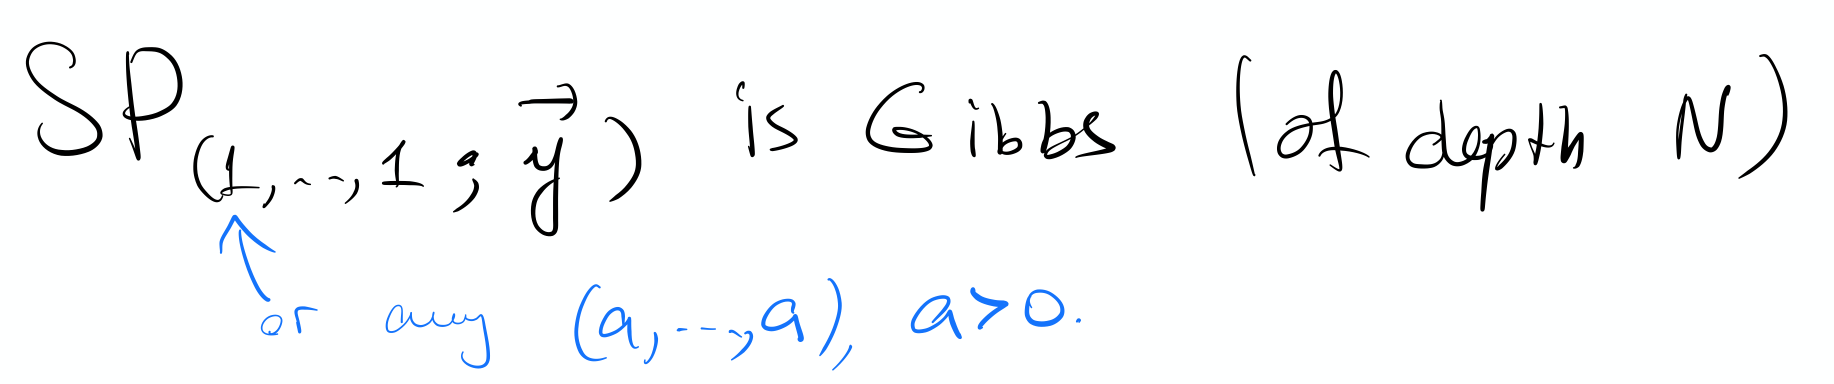 SP_(1,...,1; y⃗) is Gibbs (of depth N)
or any (a,...,a), a>0.